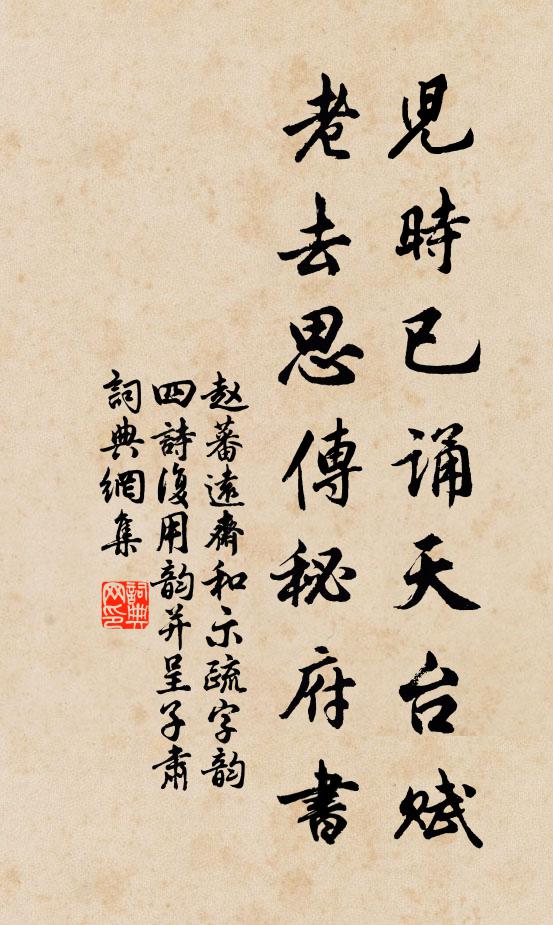 兒時已誦天台賦
老去思傳秘府書
赵蕃遠齋和示疏字韵
四詩復用韵并呈子肅
詞典網集
詞典网印